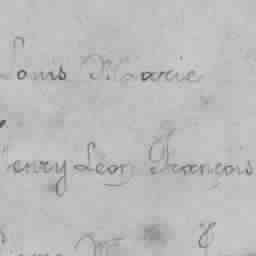 Louis Marie
Henry Leon François